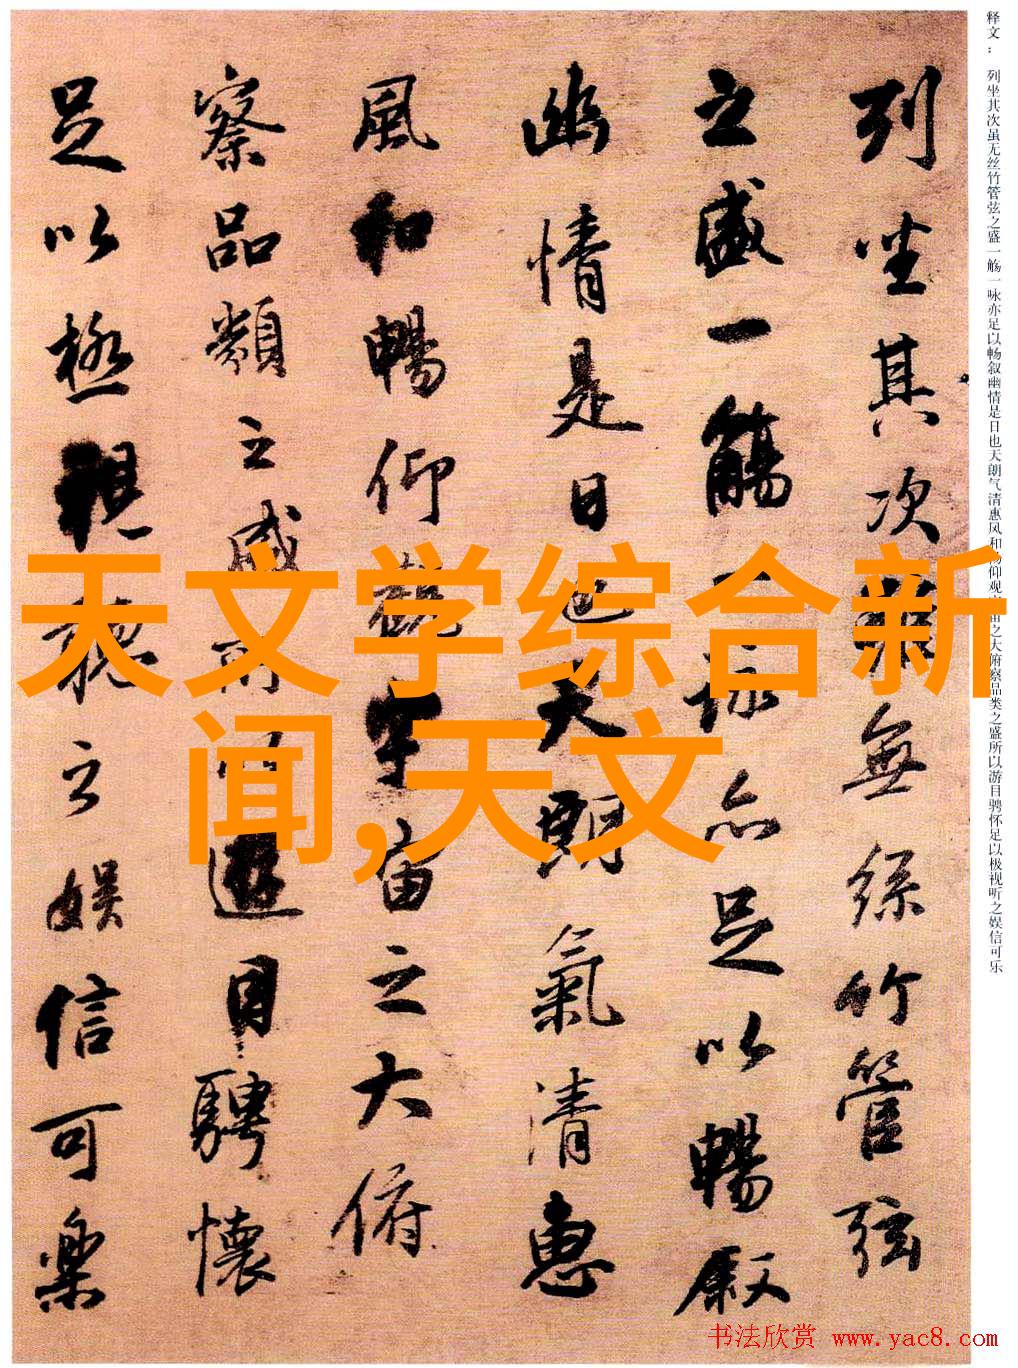 列坐其次無絲竹管弦
之盛一觴一詠亦足以暢叙
幽情是日也天朗氣清惠
風和暢仰觀宇宙之大俯
察品類之盛所以遊目騁懷
足以極視聽之娱信可樂
释文：列坐其次虽无丝竹管弦之盛一觞一咏亦足以畅叙幽情是日也天朗气清惠风和畅仰观宇宙之大俯察品类之盛所以游目骋怀足以极视听之娱信可乐
天文学综合新
闻,天文
书法欣赏 www.yac8.com